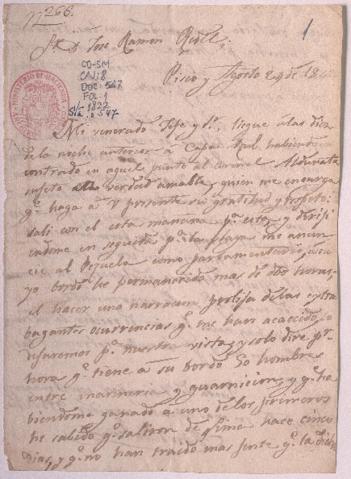 Nº 266.
1
Sr. D. José Ramon
Pisco y Agosto 24 de 18
CO-SM
CAJ: 8
DOC: 547
FOL: 1
1822
547
MINISTERIO DE HACIENDA
Mi venerado Jefe y Sr. llegué a las diez
de la noche anterior a habiendo en
contrado en aquel punto el coronel
sujeto de verdad amable, quien me encarga
qe. haga a V presente su gratitud y respeto:
salí con el esta mañana pª. este, y diriji
endome en seguida pª. la playa me anun
cié al Pezuela como parlamentario, á cu
yo bordo he permanecido mas de dos horas,
el hacer una narracion prolija de las extra
bagantes ocurrencias qe. me han acaecido,
pª. nuestra vista, y solo diré pr.
hora qe. tiene a su bordo 60 hombres
entre marineria y guarnicion, y qe. ha
biendome ganado a uno de los primeros
he sabido qe. salieron de Lima hace cinco
dias, y qe. no han traido mas gente qe. la dicha